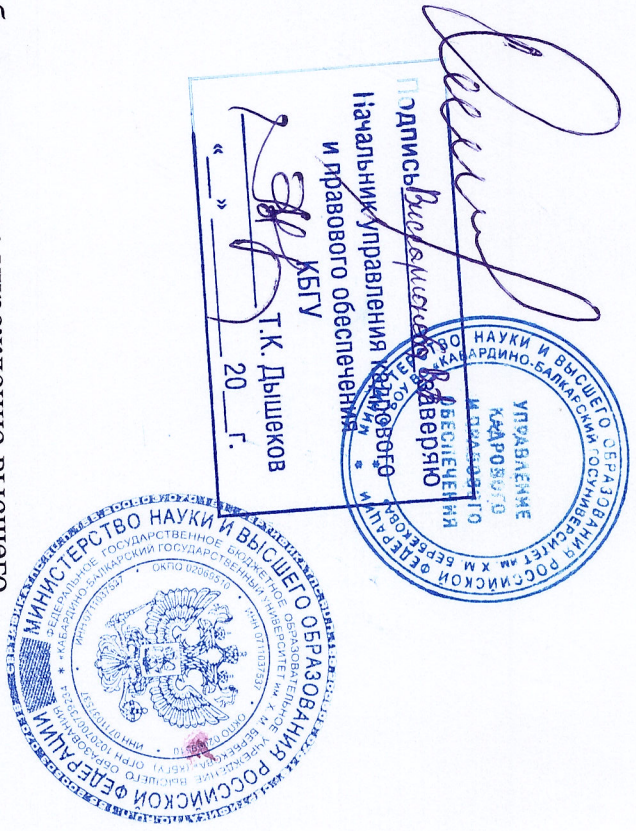 Подпись заверяю
Начальник управления кадрового
и правового обеспечения
КБГУ
Т.К. Дышеков
« » 20 г.
МИНИСТЕРСТВО НАУКИ И ВЫСШЕГО ОБРАЗОВАНИЯ РОССИЙСКОЙ ФЕДЕРАЦИИ *
«КАБАРДИНО-БАЛКАРСКИЙ ГОСУНИВЕРСИТЕТ ИМ. Х.М. БЕРБЕКОВА»
УПРАВЛЕНИЕ
КАДРОВОГО
И ПРАВОВОГО
ОБЕСПЕЧЕНИЯ
МИНИСТЕРСТВО НАУКИ И ВЫСШЕГО ОБРАЗОВАНИЯ РОССИЙСКОЙ ФЕДЕРАЦИИ
ФЕДЕРАЛЬНОЕ ГОСУДАРСТВЕННОЕ БЮДЖЕТНОЕ ОБРАЗОВАТЕЛЬНОЕ УЧРЕЖДЕНИЕ ВЫСШЕГО ОБРАЗОВАНИЯ *
«КАБАРДИНО-БАЛКАРСКИЙ ГОСУДАРСТВЕННЫЙ УНИВЕРСИТЕТ ИМ. Х.М. БЕРБЕКОВА» (КБГУ) ОГРН 1020700739234 *
ИНН 0711037537 • ОКПО 02069510 • ИНН 0711037537 • ОКПО 02069510 • ИНН 0711037537